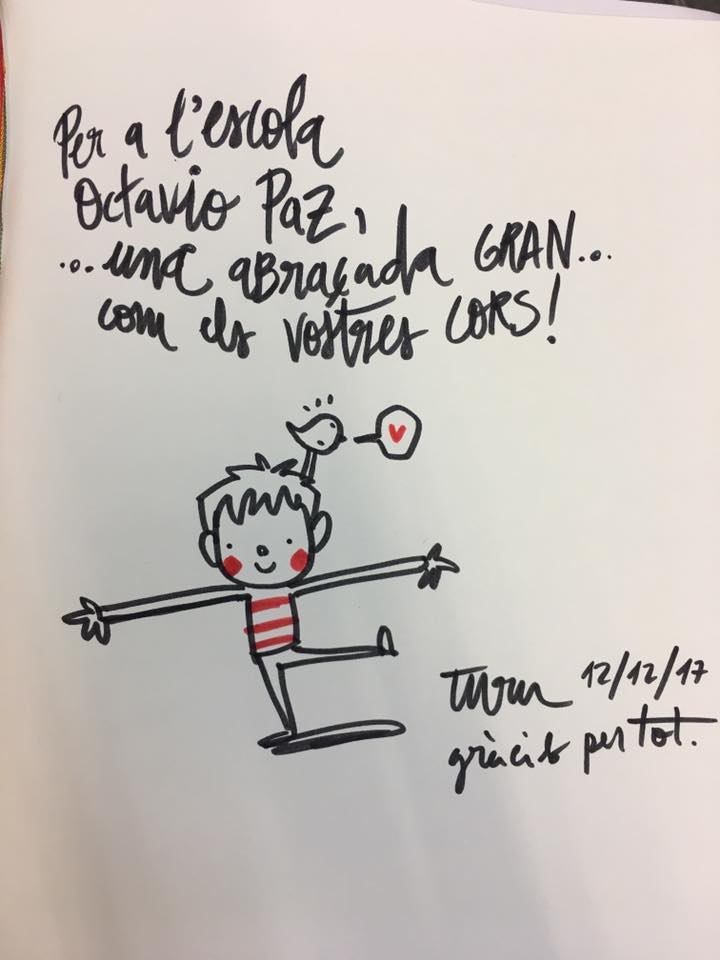 Per a l'escola
Octavio Paz,
...una abraçada GRAN...
com els vostres CORS!
12/12/17
gràcies per tot.